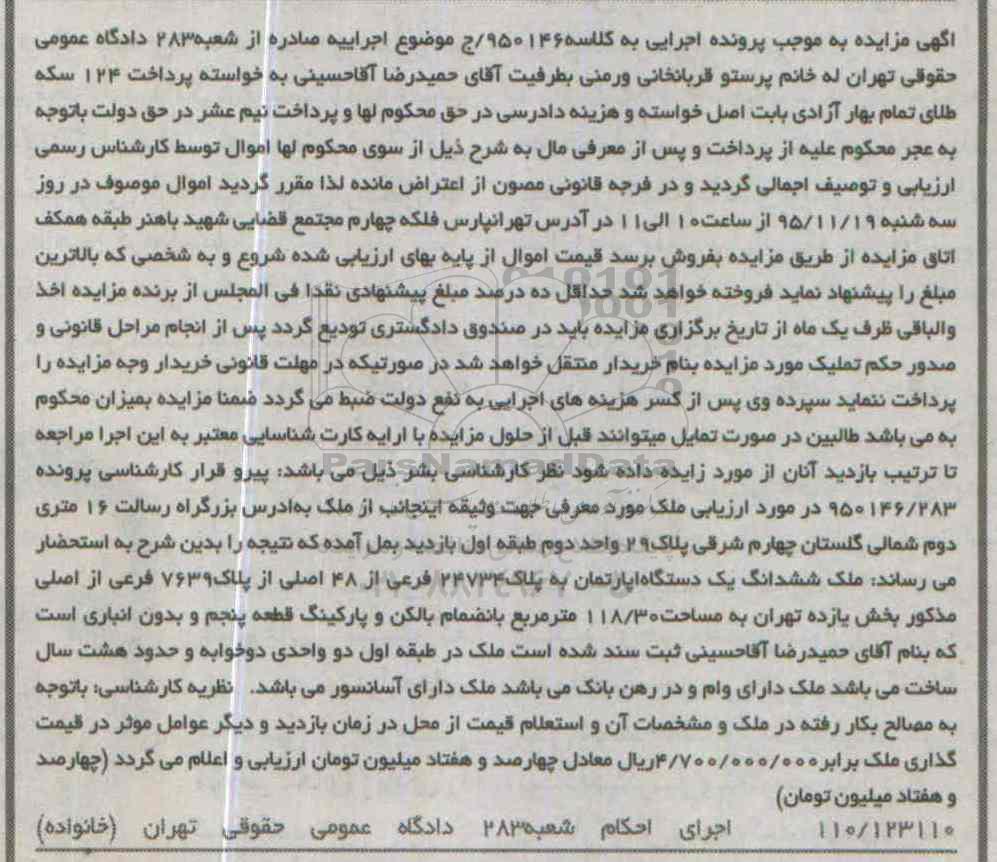 آگهی مزایده به موجب پرونده اجرایی به کلاسه۹۵۰۱۴۶/ج موضوع اجراییه صادره از شعبه۲۸۳ دادگاه عمومی
حقوقی تهران له خانم پرستو قربانخانی ورمنی بطرفیت آقای حمیدرضا آقاحسینی به خواسته پرداخت ۱۲۴ سکه
طلای تمام بهار آزادی بابت اصل خواسته و هزینه دادرسی در حق محکوم لها و پرداخت نیم عشر در حق دولت باتوجه
به عجر محکوم علیه از پرداخت و پس از معرفی مال به شرح ذیل از سوی محکوم لها اموال توسط کارشناس رسمی
ارزیابی و توصیف اجمالی گردید و در فرجه قانونی مصون از اعتراض مانده لذا مقرر گردید اموال موصوف در روز
سه شنبه ۹۵/۱۱/۱۹ از ساعت۱۰ الی۱۱ در آدرس تهرانپارس فلکه چهارم مجتمع قضایی شهید باهنر طبقه همکف
اتاق مزایده از طریق مزایده بفروش برسد قیمت اموال از پایه بهای ارزیابی شده شروع و به شخصی که بالاترین
مبلغ را پیشنهاد نماید فروخته خواهد شد حداقل ده درصد مبلغ پیشنهادی نقدا فی المجلس از برنده مزایده اخذ
والباقی ظرف یک ماه از تاریخ برگزاری مزایده باید در صندوق دادگستری تودیع گردد پس از انجام مراحل قانونی و
صدور حکم تملیک مورد مزایده بنام خریدار منتقل خواهد شد در صورتیکه در مهلت قانونی خریدار وجه مزایده را
پرداخت ننماید سپرده وی پس از کسر هزینه های اجرایی به نفع دولت ضبط می گردد ضمنا مزایده بمیزان محکوم
به می باشد طالبین در صورت تمایل میتوانند قبل از حلول مزایده با ارایه کارت شناسایی معتبر به این اجرا مراجعه
تا ترتیب بازدید آنان از مورد زایده داده شود نظر کارشناسی بشر ذیل می باشد: پیرو قرار کارشناسی پرونده
۹۵۰۱۴۶/۲۸۳ در مورد ارزیابی ملک مورد معرفی جهت وثیقه اینجانب از ملک به‌ادرس بزرگراه رسالت ۱۶ متری
دوم شمالی گلستان چهارم شرقی پلاک۲۹ واحد دوم طبقه اول بازدید بمل آمده که نتیجه را بدین شرح به استحضار
می رساند: ملک ششدانگ یک دستگاه‌اپارتمان به پلاک۲۴۷۳۴ فرعی از ۴۸ اصلی از پلاک۷۶۳۹ فرعی از اصلی
مذکور بخش یازده تهران به مساحت۱۱۸/۳۰ مترمربع بانضمام بالکن و پارکینگ قطعه پنجم و بدون انباری است
که بنام آقای حمیدرضا آقاحسینی ثبت سند شده است ملک در طبقه اول دو واحدی دوخوابه و حدود هشت سال
ساخت می باشد ملک دارای وام و در رهن بانک می باشد ملک دارای آسانسور می باشد. نظریه کارشناسی: باتوجه
به مصالح بکار رفته در ملک و مشخصات آن و استعلام قیمت از محل در زمان بازدید و دیگر عوامل موثر در قیمت
گذاری ملک برابر۴/۷۰۰/۰۰۰/۰۰۰ریال معادل چهارصد و هفتاد میلیون تومان ارزیابی و اعلام می گردد (چهارصد
و هفتاد میلیون تومان)
۱۱۰/۱۲۳۱۱۰ اجرای احکام شعبه۲۸۳ دادگاه عمومی حقوقی تهران (خانواده)
ParsNamadData